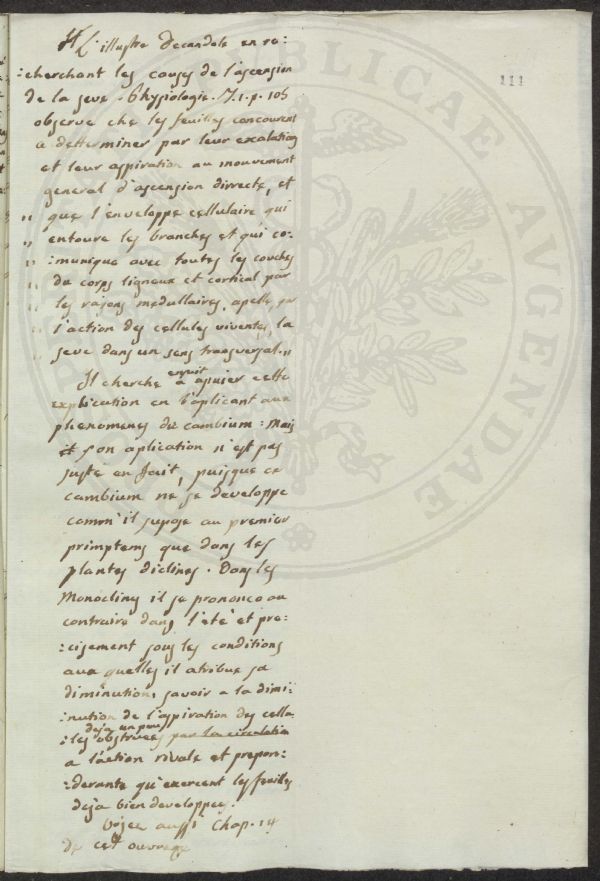 # L'illustre Decandole en re:
:cherchant les causes de l'ascension
de la seve. Physiologie. T.1.p. 105
observe che les feuilles concourent
a detterminer par leur exalation
et leur aspiration au mouvement
general d'ascension dirrecte, et
" que l'enveloppe cellulaire qui
" entoure les branches et qui co:
" :munique avec toutes les couches
" du corps ligneux et cortical par
" les rayons medullaires, apelle, par
" l'action des cellules viventes, la
" seve dans un sens transversal."
Il cherche ensuit a apuier cette
explication en l'aplicant aux
phenomenes du cambium: Mais
son aplication n'est pas
juste en fait, puisque ce
cambium ne se developpe
comm'il supose au premier
primptems que dans les
plantes diclines. Dans les
Monoclines il se prononce au
contraire dans l'eté et pre:
:cisement sous les conditions
aux quelles il atribue sa
diminution, savoir a la dimi:
:nution de l'aspiration des cellu
deja un peu
:les obstruées par la circulation
a l'action rivale et prepon:
:derante qu'exercent les feuilles
deja bien developpees.
Voyez aussi Chap. 14
de cet ouvrage
111
PUBLICAE
AVGENDAE